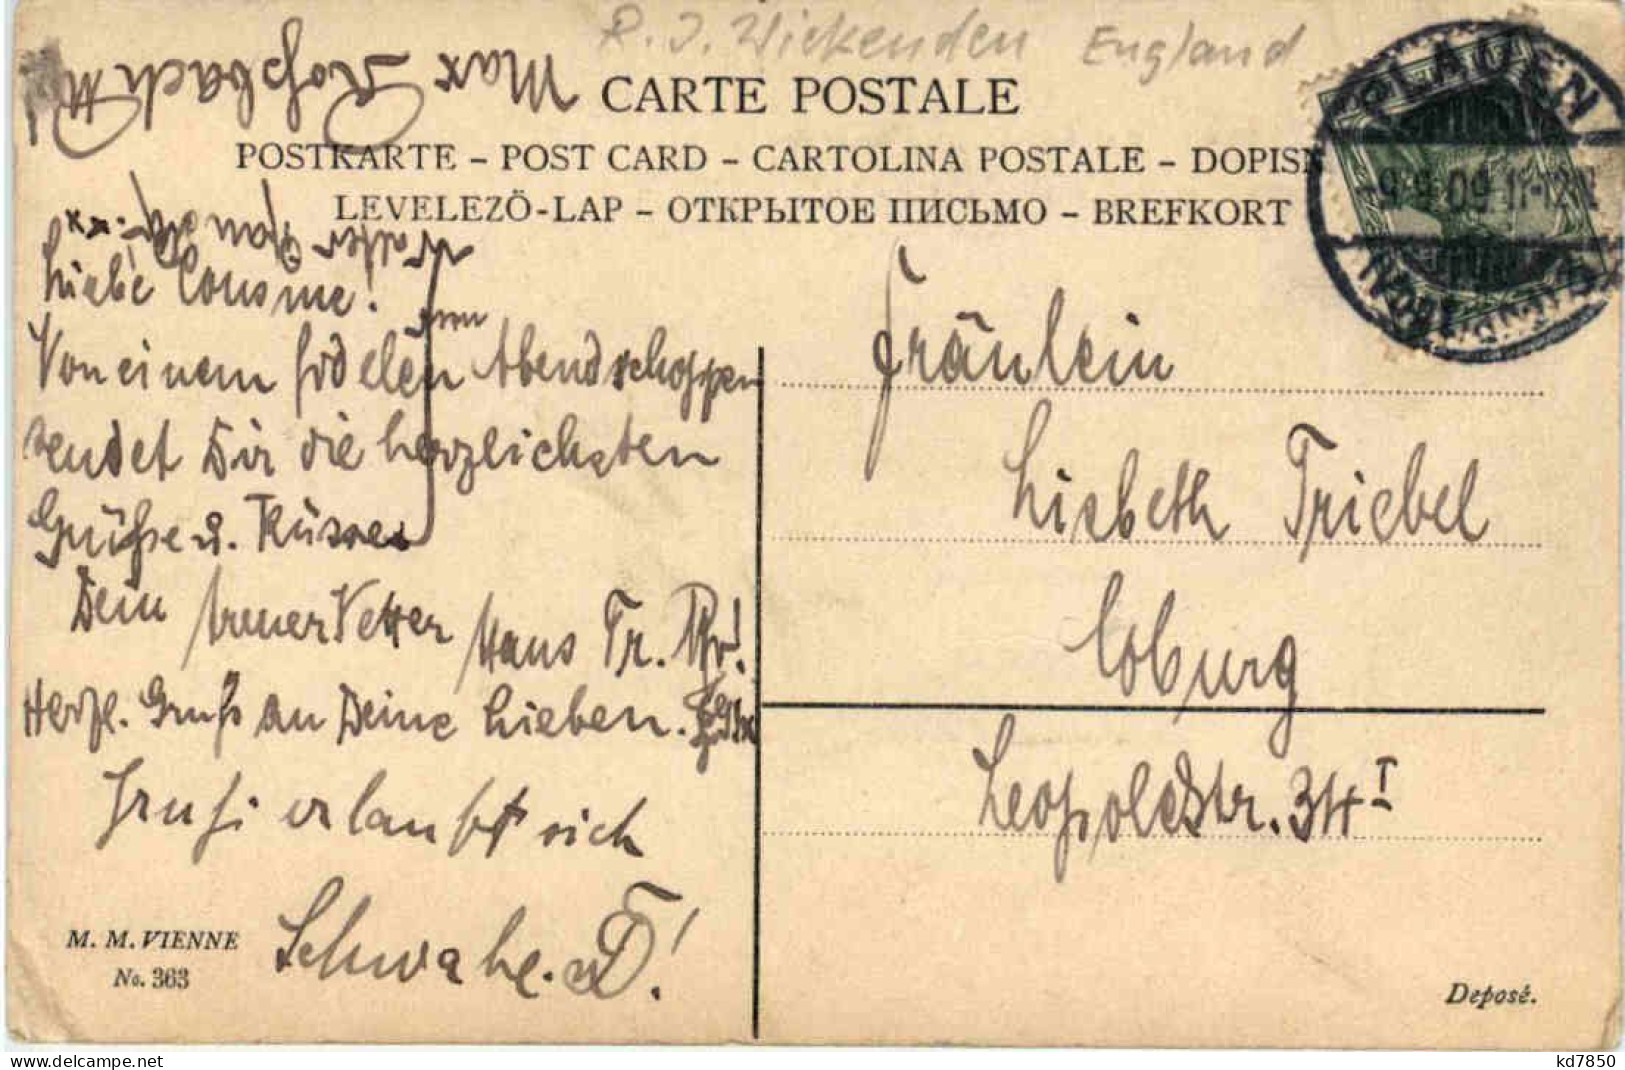 R. J. Wickenden England
Max Roßbach
CARTE POSTALE
POSTKARTE – POST CARD – CARTOLINA POSTALE – DOPISN
LEVELEZÖ-LAP – ОТКРЫТОЕ ПИСЬМО – BREFKORT
PLAUEN
9.9.09.11-12
(VOGTL.)
Liebe Cousine!
Von einem fidelen Abendschoppen
sendet Dir die herzlichsten
Grüße u. Küsse
Dein treuer Vetter Hans Tr.
Herzl. Gruß an Deine Lieben.
Gruß erlaubt sich
Schwabe.
Fräulein
Lisbeth Triebel
Coburg
Leopoldstr. 34 I
M. M. VIENNE
No. 363
Deposé.
kd7850
www.delcampe.net